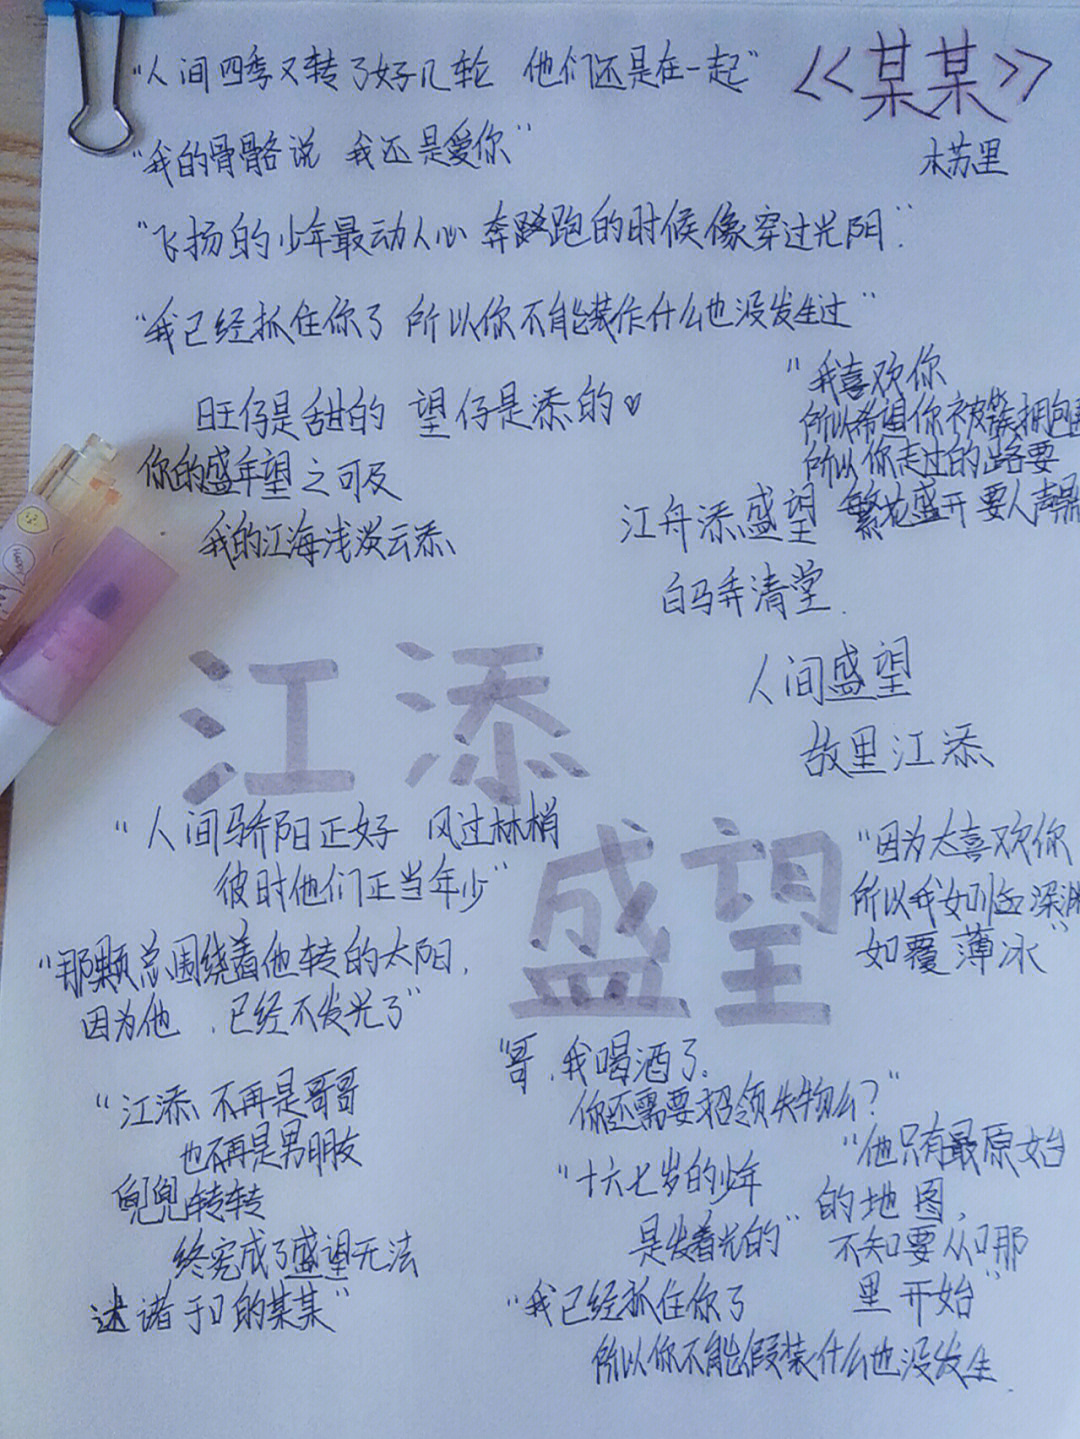 "人间四季又转了好几轮 他们还是在一起"
<<某某>>
木苏里
"我的骨骼说 我还是爱你"
"飞扬的少年最动人心 奔跑的时候像穿过光阴"
"我已经抓住你了 所以你不能装作什么也没发生过"
旺仔是甜的 望仔是添的♥
你的盛年望之可及
我的江海浅淡云添
"我喜欢你
所以希望你被簇拥包围
所以你走过的路要
繁花盛开 要人声鼎
江舟添盛望
白马弄清堂.
人间盛望
故里江添
江添
盛望
"人间骄阳正好 风过林梢
彼时他们正当年少"
"因为太喜欢你
所以我如临深渊
如覆薄冰"
"那颗总围绕着他转的太阳,
因为他,已经不发光了"
"哥,我喝酒了。
你还需要招领失物么?"
"江添、不再是哥哥
也不再是男朋友
兜兜转转
终究成了盛望无法
述诸于口的某某"
"十六七岁的少年
是发着光的"
"他只有最原始
的地图,
不知要从哪
里开始"
"我已经抓住你了
所以你不能假装什么也没发生.